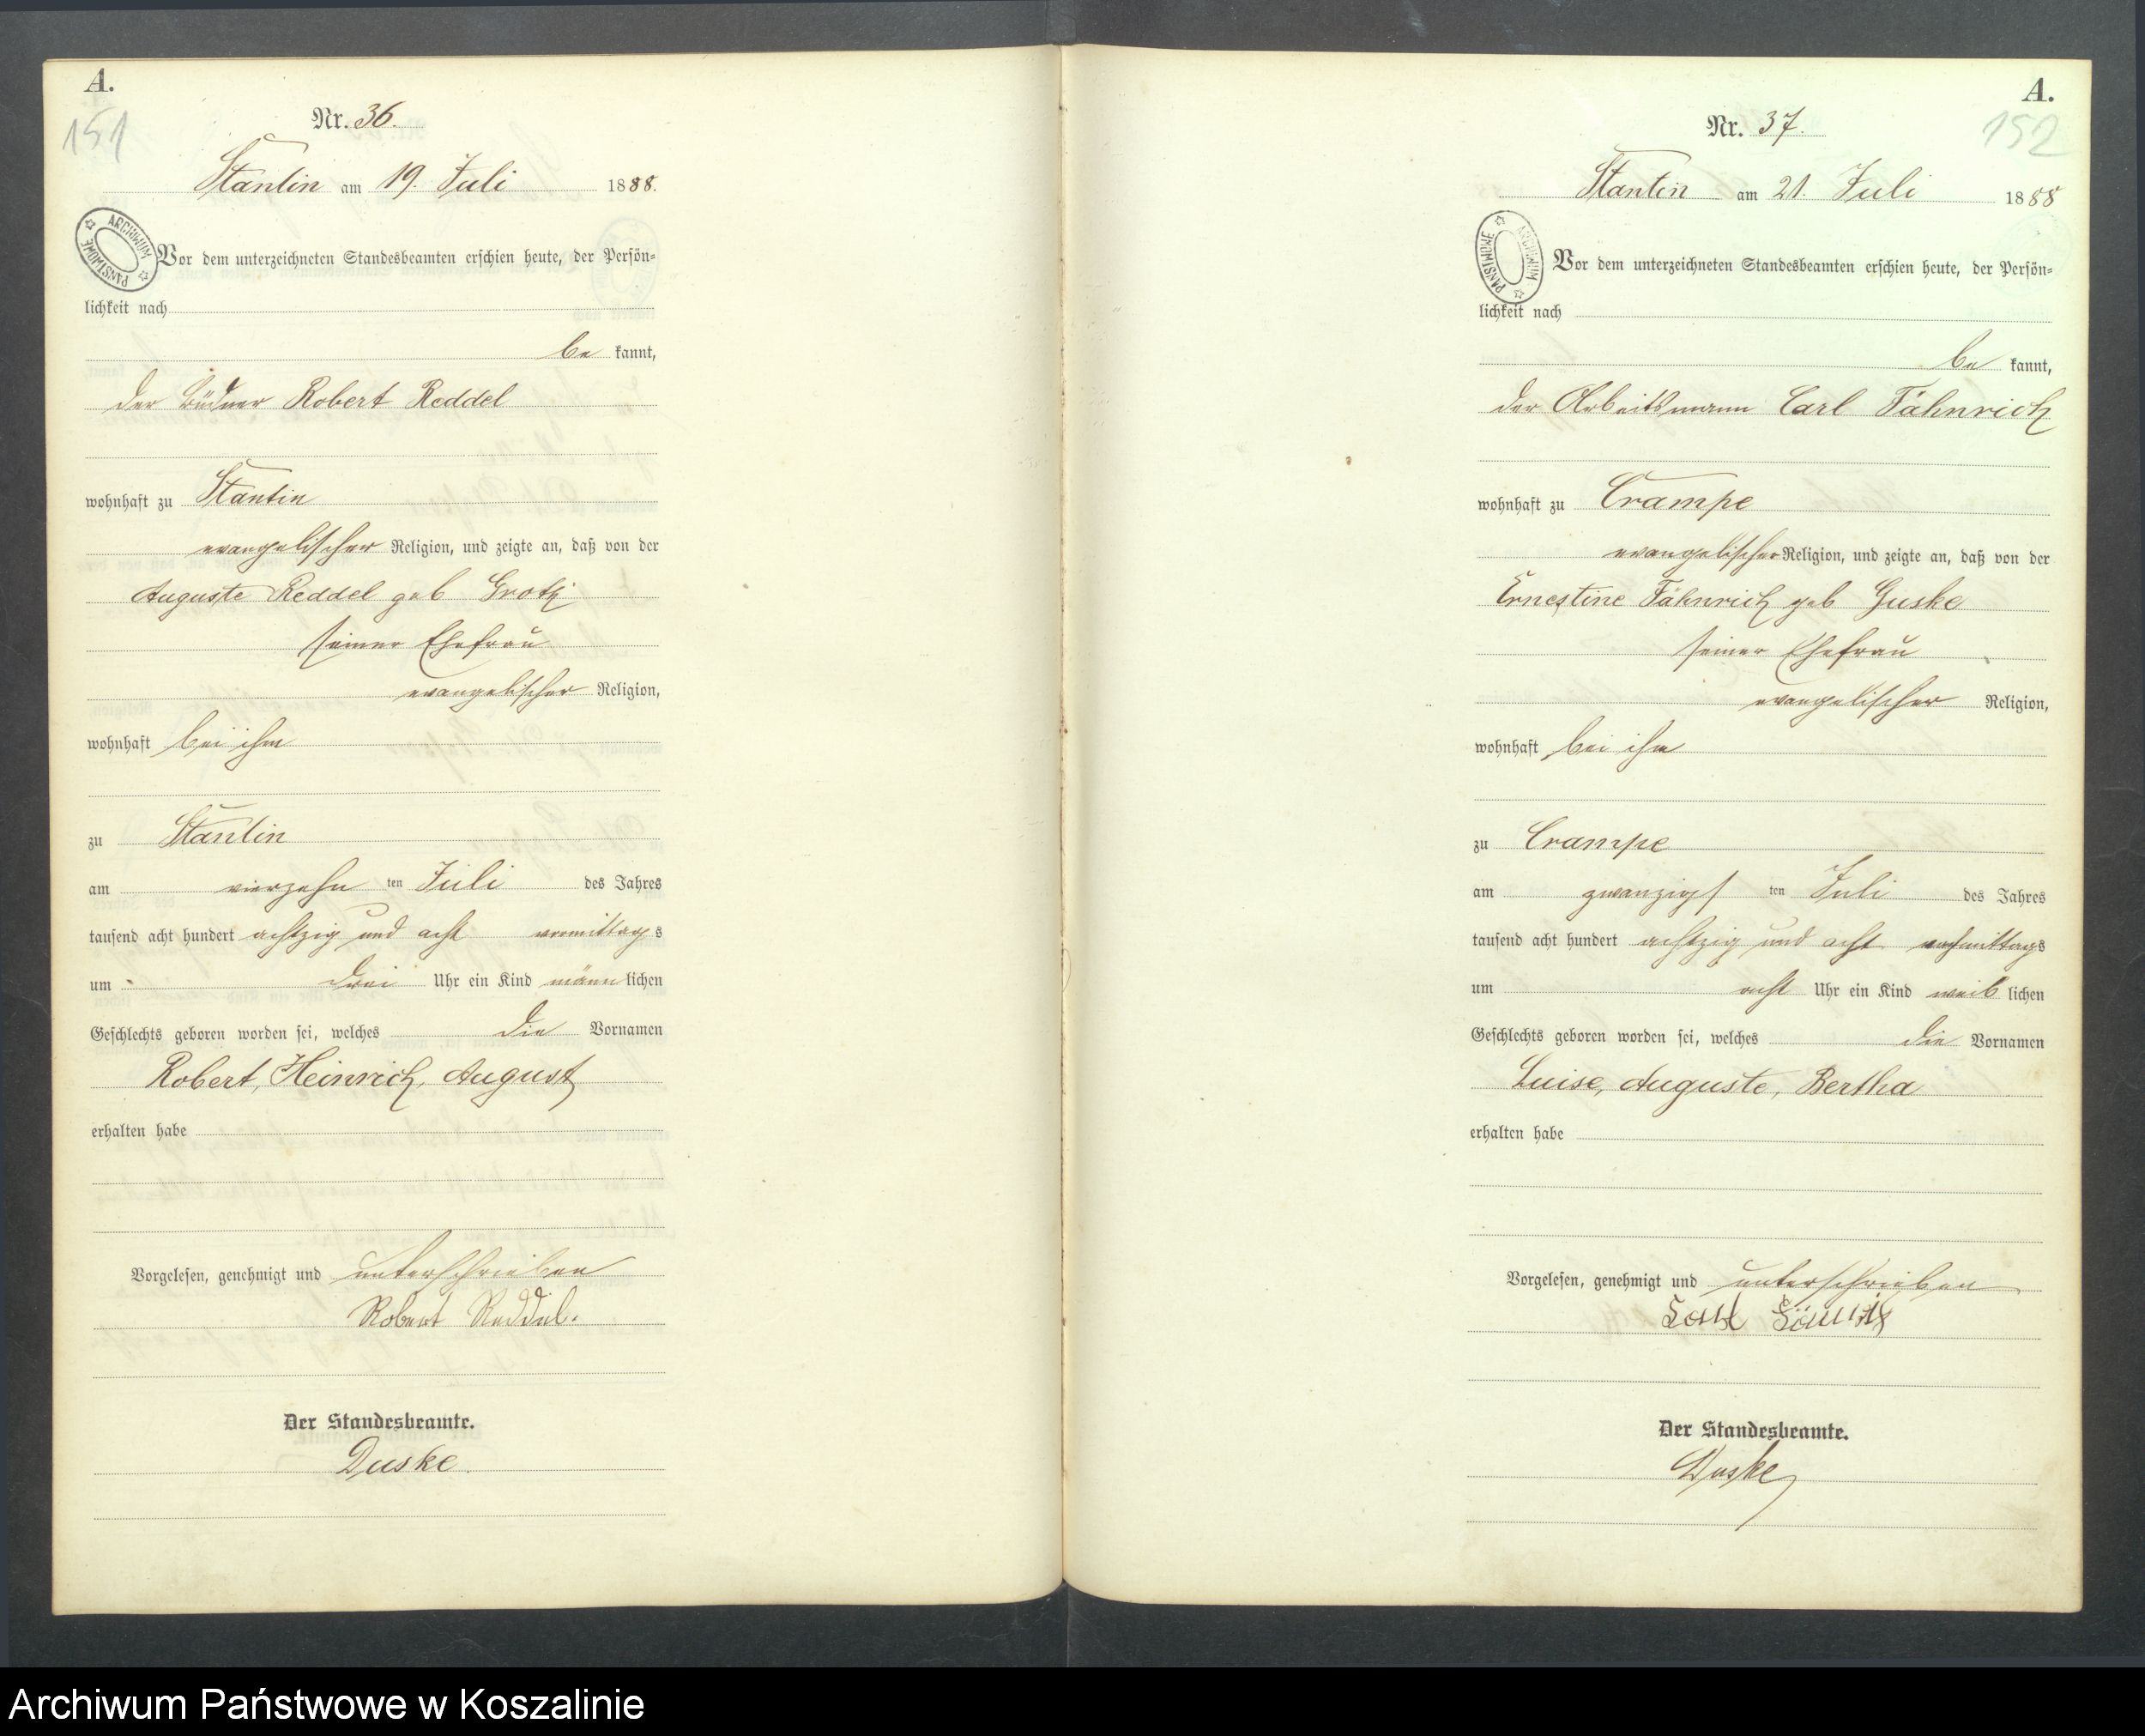 A.
151
Nr. 36.
Stantin am 19. Juli 1888.
ARCHIWUM PAŃSTWOWE
Vor dem unterzeichneten Standesbeamten erschien heute, der Persön=
lichkeit nach
be kannt,
der Büdner Robert Reddel
wohnhaft zu Stantin
evangelischer Religion, und zeigte an, daß von der
Auguste Reddel geb Groth
seiner Ehefrau
evangelischer Religion,
wohnhaft bei ihm
zu Stantin
am vierzehn ten Juli des Jahres
tausend acht hundert achtzig und acht vormittags
um drei Uhr ein Kind männlichen
Geschlechts geboren worden sei, welches die Vornamen
Robert, Heinrich, August
erhalten habe
Vorgelesen, genehmigt und unterschrieben
Robert Reddel.
Der Standesbeamte.
Duske.
A.
152
Nr. 37.
Stantin am 21. Juli 1888
ARCHIWUM PAŃSTWOWE
Vor dem unterzeichneten Standesbeamten erschien heute, der Persön=
lichkeit nach
be kannt,
der Arbeitsmann Carl Fähnrich
wohnhaft zu Crampe
evangelischer Religion, und zeigte an, daß von der
Ernestine Fähnrich geb Guske
seiner Ehefrau
evangelischer Religion,
wohnhaft bei ihm
zu Crampe
am zwanzigs ten Juli des Jahres
tausend acht hundert achtzig und acht nachmittags
um acht Uhr ein Kind weib lichen
Geschlechts geboren worden sei, welches die Vornamen
Luise, Auguste, Bertha
erhalten habe
Vorgelesen, genehmigt und unterschrieben
Der Standesbeamte.
Duske
Archiwum Państwowe w Koszalinie